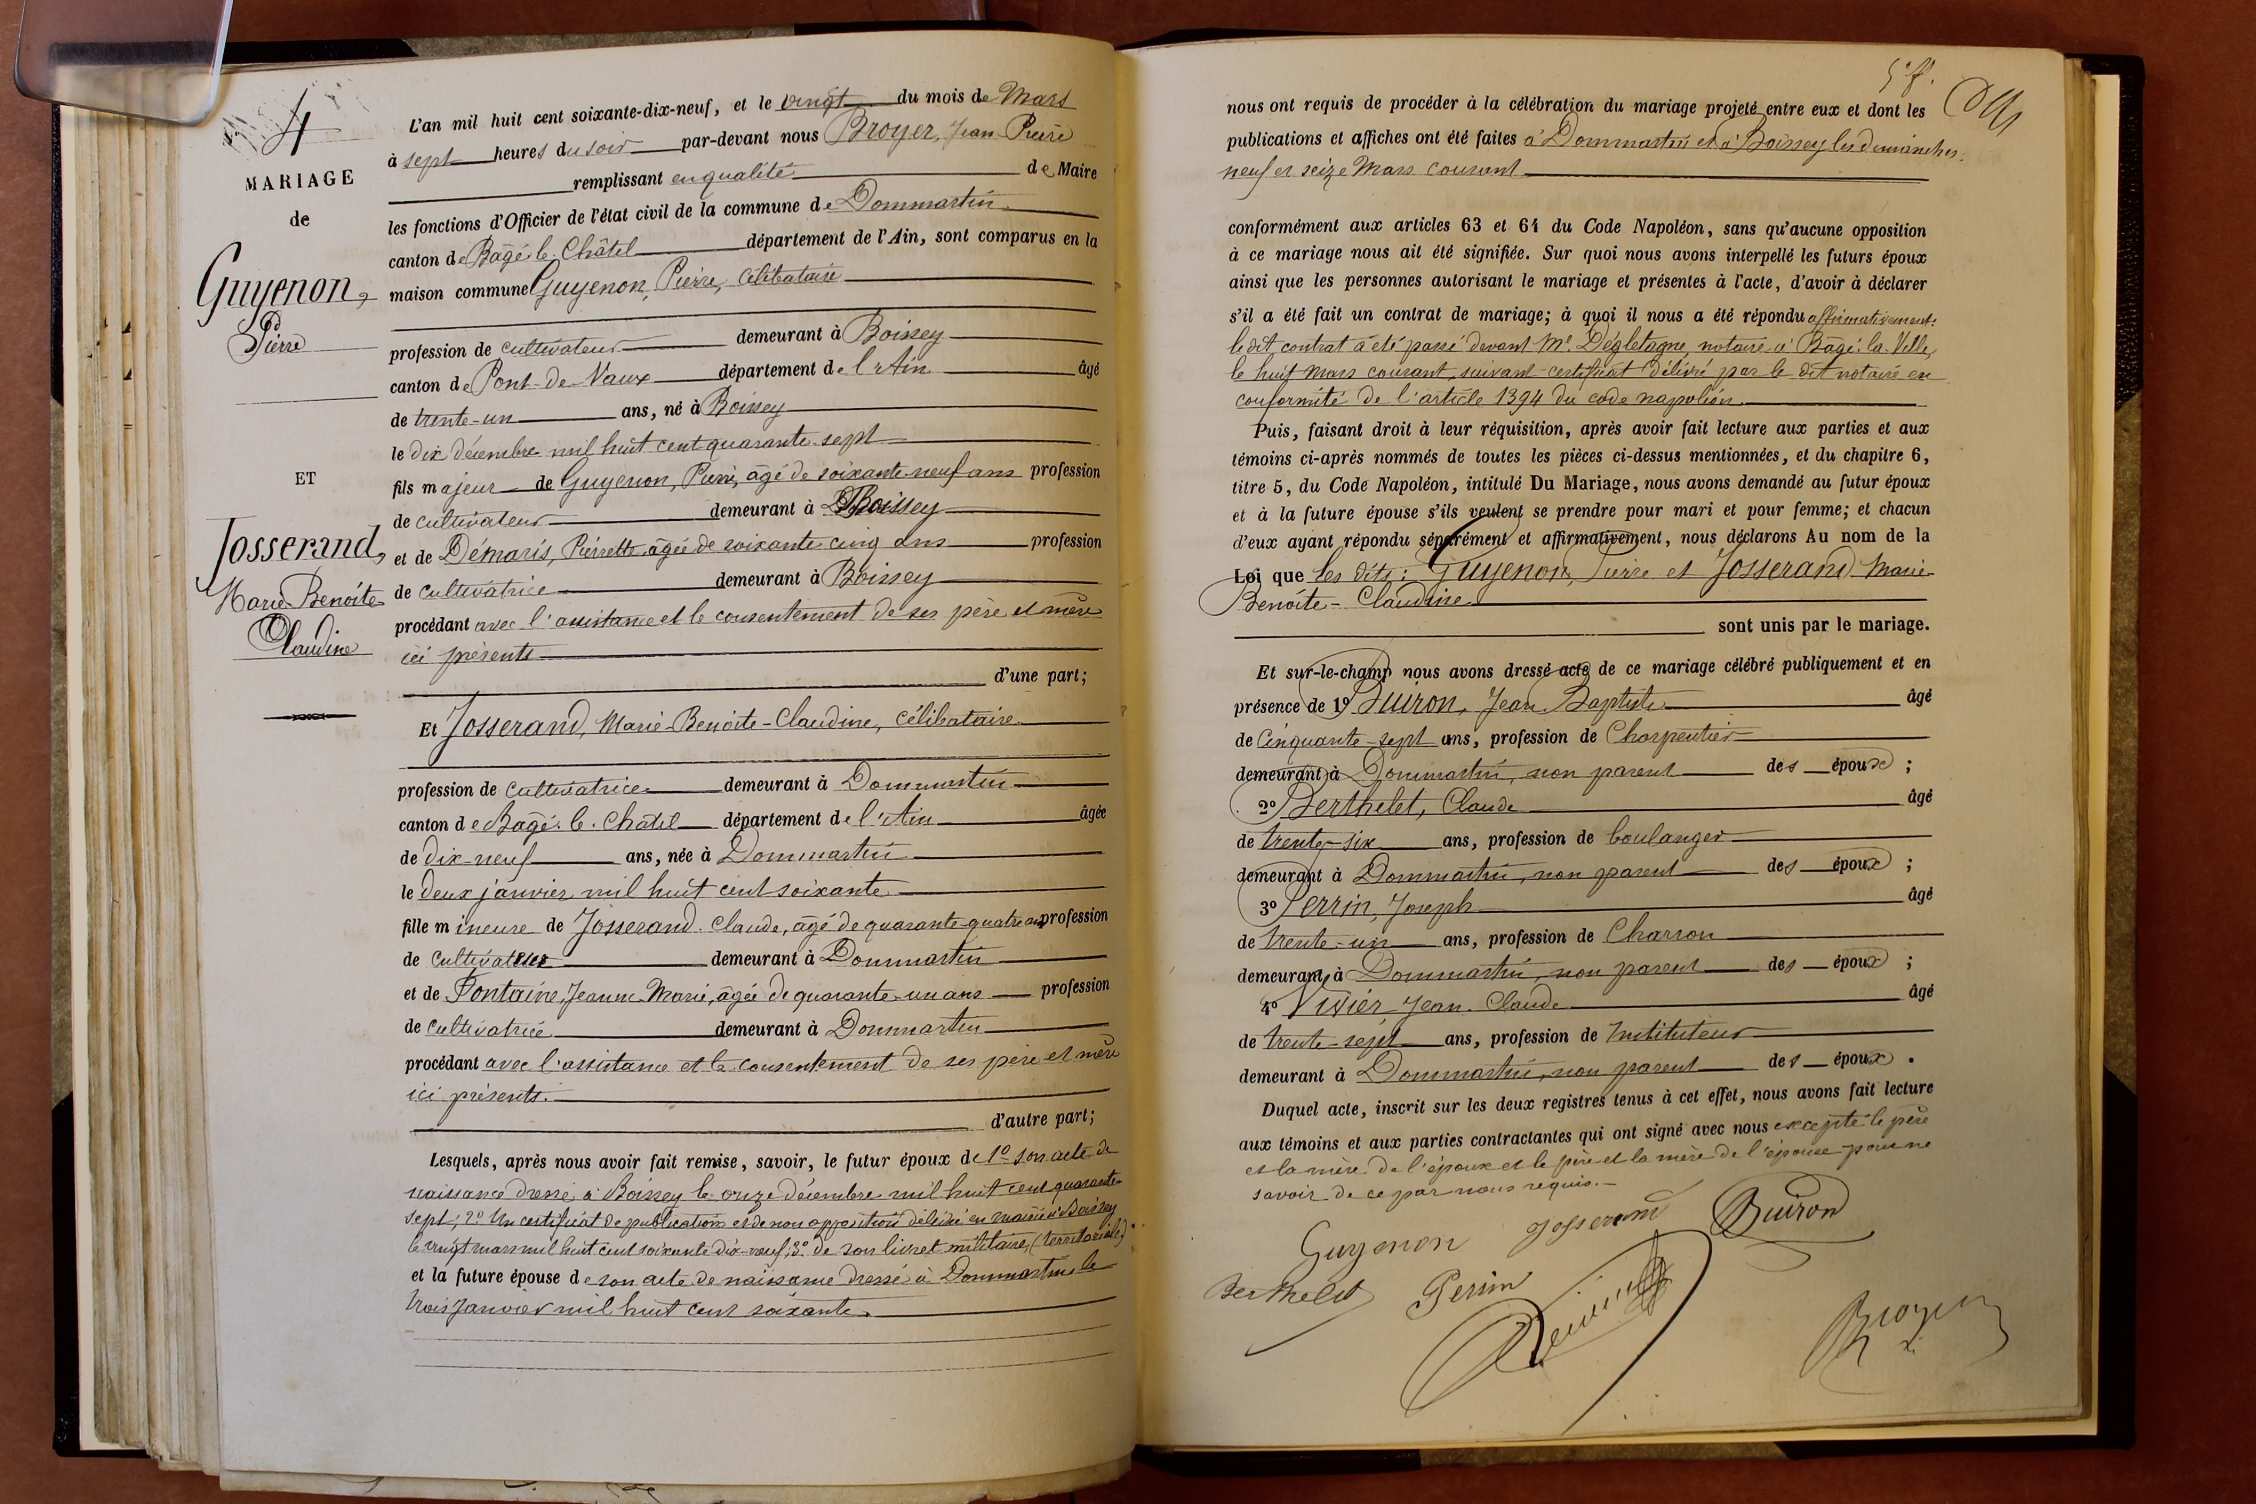 4
MARIAGE
de
Guyenon,
Pierre
ET
Josserand,
Marie-Benoîte
Claudine
L'an mil huit cent soixante-dix-neuf, et le vingt du mois de Mars
à sept heures du soir par-devant nous Broyer, Jean Pierre
remplissant en qualité de Maire
les fonctions d'Officier de l'état civil de la commune de Dommartin
canton de Bâgé-le-Châtel département de l'Ain, sont comparus en la
maison commune Guyenon, Pierre, célibataire
profession de cultivateur demeurant à Boissey
canton de Pont-de-Vaux département de l'Ain âgé
de trente-un ans, né à Boissey
le dix décembre mil huit cent quarante-sept
fils majeur de Guyenon, Pierre, âgé de soixante-neuf ans profession
de cultivateur demeurant à Boissey
et de Démaris, Pierrette âgée de soixante cinq ans profession
de cultivatrice demeurant à Boissey
procédant avec l'assistance et le consentement de ses père et mère
ici présents
d'une part;
Et Josserand, Marie-Benoite-Claudine, célibataire
profession de cultivatrice demeurant à Dommartin
canton de Bâgé-le-Châtel département de l'Ain âgée
de dix-neuf ans, née à Dommartin
le deux janvier mil huit cent soixante
fille mineure de Josserand Claude, âgé de quarante-quatre ans profession
de cultivateur demeurant à Dommartin
et de Fontaine, Jeanne Marie, âgée de quarante-un ans profession
de cultivatrice demeurant à Dommartin
procédant avec l'assistance et le consentement de ses père et mère
ici présents.
d'autre part;
Lesquels, après nous avoir fait remise, savoir, le futur époux de 1º son acte de
naissance dressé à Boissey le onze décembre mil huit cent quarante
sept; 2º Un certificat de publications et de non opposition délivré en mairie à Boissey
le vingt mars mil huit cent soixante dix-neuf; 3º de son livret militaire, (territoriale)
et la future épouse de son acte de naissance dressé à Dommartin le
trois janvier mil huit cent soixante.
5e f.
nous ont requis de procéder à la célébration du mariage projeté entre eux et dont les
publications et affiches ont été faites à Dommartin et à Boissey les dimanches
neuf et seize Mars courant
conformément aux articles 63 et 64 du Code Napoléon, sans qu'aucune opposition
à ce mariage nous ait été signifiée. Sur quoi nous avons interpellé les futurs époux
ainsi que les personnes autorisant le mariage et présentes à l'acte, d'avoir à déclarer
s'il a été fait un contrat de mariage; à quoi il nous a été répondu affirmativement:
le dit contrat a été passé devant Me Dégletagne, notaire à Bâgé-la-Ville,
le huit mars courant, suivant certificat délivré par le dit notaire en
conformité de l'article 1394 du code napoléon.
Puis, faisant droit à leur réquisition, après avoir fait lecture aux parties et aux
témoins ci-après nommés de toutes les pièces ci-dessus mentionnées, et du chapitre 6,
titre 5, du Code Napoléon, intitulé Du Mariage, nous avons demandé au futur époux
et à la future épouse s'ils veulent se prendre pour mari et pour femme; et chacun
d'eux ayant répondu séparément et affirmativement, nous déclarons Au nom de la
Loi que les dits: Guyenon, Pierre et Josserand Marie
Benoîte-Claudine
sont unis par le mariage.
Et sur-le-champ nous avons dressé acte de ce mariage célébré publiquement et en
présence de 1º Buiron, Jean Baptiste âgé
de Cinquante-sept ans, profession de Charpentier
demeurant à Dommartin, non parent des époux;
2º Berthelet, Claude âgé
de trente-six ans, profession de boulanger
demeurant à Dommartin, non parent des époux;
3º Perrin, Joseph âgé
de trente-un ans, profession de Charron
demeurant à Dommartin, non parent des époux;
4º Vivier Jean-Claude âgé
de trente-sept ans, profession de Instituteur
demeurant à Dommartin, non parent des époux.
Duquel acte, inscrit sur les deux registres tenus à cet effet, nous avons fait lecture
aux témoins et aux parties contractantes qui ont signé avec nous excepté le père
et la mère de l'époux et le père et la mère de l'épouse pour ne
savoir de ce par nous requis.
Guyenon Josserand Buiron
Berthelet Perrin
Broyer